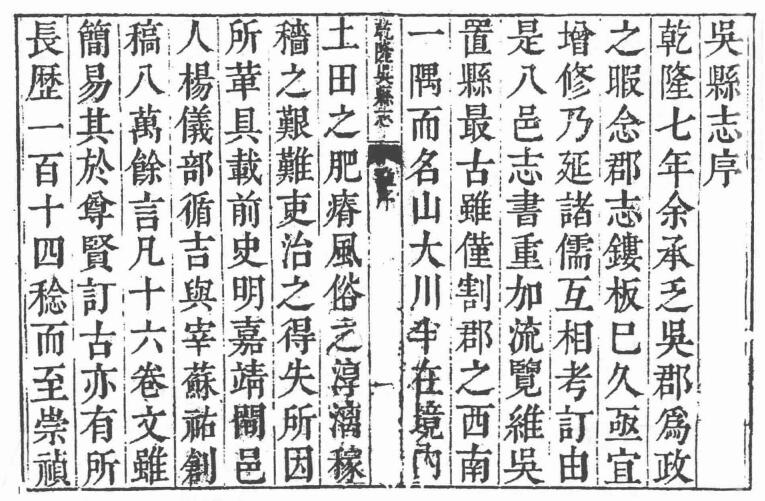 吳縣志序
乾隆七年余承乏吳郡爲政
之暇念郡志鏤板已久亟宜
增修乃延諸儒互相考訂由
是八邑志書重加流覽維吳
置縣最古雖僅割郡之西南
一隅而名山大川半在境內
乾隆吳縣志 序 一
土田之肥瘠風俗之淳漓稼
穡之艱難吏治之得失所因
所革具載前史明嘉靖間邑
人楊儀部循吉與宰蘇祐創
稿八萬餘言凡十六卷文雖
簡易其於尊賢訂古亦有所
長歷一百十四稔而至崇禎